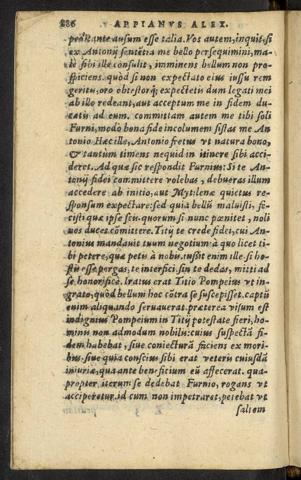 286 APPIANVS ALEX.
prædicante ausum esse talia. Vos autem, inquit, si
ex Antonij sententia me bello persequimini, ma-
le sibi ille consulit, imminens bellum non pro-
spiciens. quòd si non expectato eius iussu rem
geritis, oro obtestorq́; expectetis dum legati mei
ab illo redeant, aut acceptum me in fidem du-
catis ad eum. committam autem me tibi soli
Furni, modò bona fide incolumem sistas me An
tonio. Hæc ille, Antonio fretus vt natura bono,
& tantùm timens nequid in itinere sibi acci-
deret. Ad quæ sic respondit Furnius: Si te An-
tonij fidei committere volebas, debueras illum
accedere ab initio, aut Mytilenæ quietus re-
sponsum expectare: sed quia bellū maluisti, fe-
cistiq́; quæ ipse scis, quorum si nunc pœnitet, noli
nos duces cōmittere. Titij te crede fidei, cui An-
tonius mandauit tuum negotium. à quo licet ti-
bi petere, quæ petis à nobis. iussit enim ille. si ho-
stis esse pergas, te interfici. sin te dedas, mitti ad
se honorificè. Iratus erat Titio Pompeius vt in-
grato, quòd bellum hoc cōtra se suscepisset. captū
enim aliquando seruauerat. præterea visum est
indignius Pompeium in Titij potestate fieri, ho-
minis non admodum nobilis: cuius suspectā fi-
dem habebat, siue coniecturā faciens ex mori-
bus, siue quia conscius sibi erat veteris cuiusdā
iniuriæ, qua ante beneficium eū affecerat. qua-
propter iterum se dedebat Furnio, rogans vt
acciperetur. id cum non impetraret, petebat vt
saltem